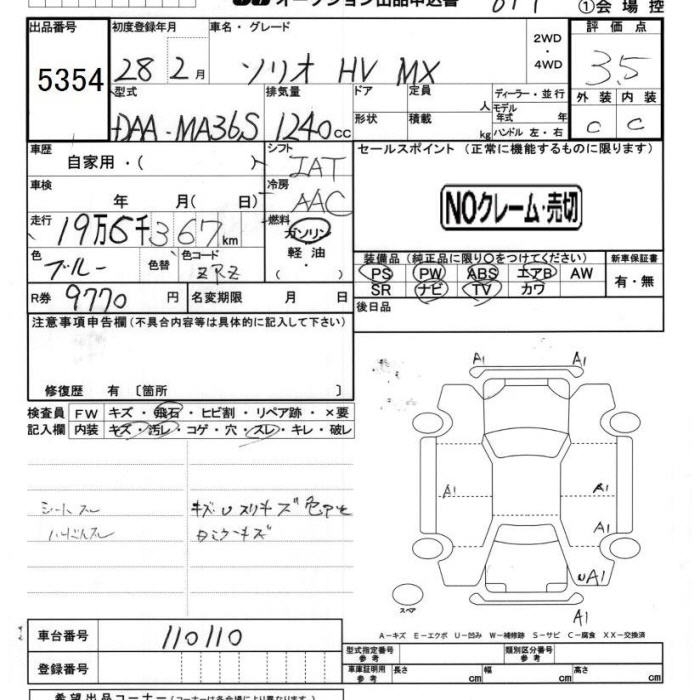 オークション出品申込書
①会場控
出品番号 初度登録年月 車名・グレード 2WD・4WD 評価点
5354 28 2月 ソリオ HV MX 3.5
型式 排気量 ドア 定員 人 ディーラー・並行 外装 内装
DAA-MA36S 1240cc 形状 積載 kg モデル年式 年 ハンドル 左・右 C C
車歴 シフト セールスポイント（正常に機能するものに限ります）
自家用・( ) IAT
車検 冷房 NOクレーム・売切
年 月( 日) AAC
走行 燃料
19万6千367km ガソリン
色 色替 色コード 軽油 装備品（純正品に限り〇をつけてください） 新車保証書
ブルー ZRZ ( ・ ) PS PW ABS エアB AW 有・無
R券 9770円 名変期限 月 日 SR ナビ TV カワ
後日品
注意事項申告欄（不具合内容等は具体的に記入して下さい）
修復歴 有〔箇所 〕
検査員 FW キズ・飛石・ヒビ割・リペア跡・×要
記入欄 内装 キズ・汚レ・コゲ・穴・スレ・キレ・破レ
A1 A1
A1 A1
A1
シートスレ
UA1
スペア
A1
A－キズ E－エクボ U－凹み W－補修跡 S－サビ C－腐食 XX－交換済
車台番号 110110 型式指定番号 参考 類別区分番号 参考
登録番号 車庫証明用 参考 長さ cm 幅 cm 高さ cm
希望出品コーナー（コーナーは各会場により異なります）